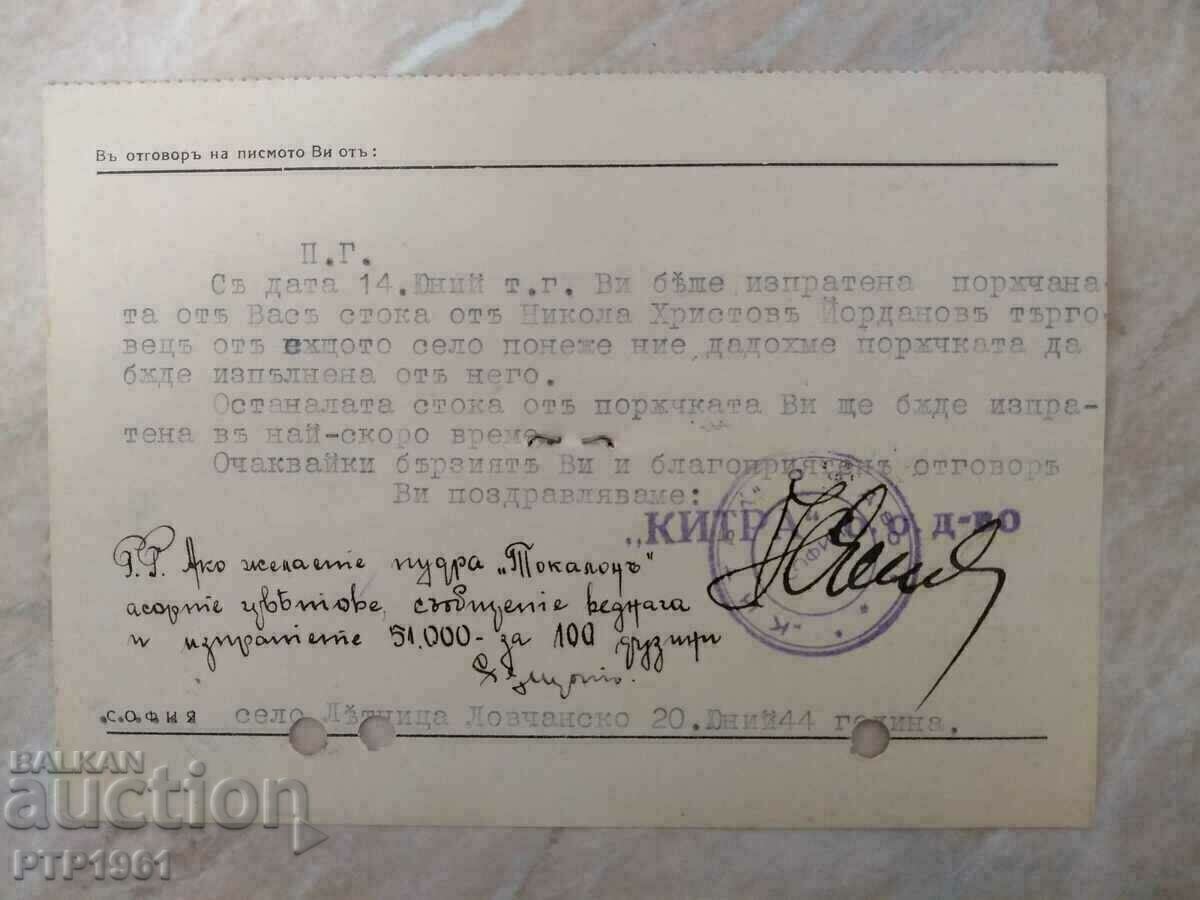 Въ отговоръ на писмото Ви отъ:
П.Г.
Съ дата 14.Юний т.г. Ви бѣше изпратена порѫчана-
та отъ Васъ стока отъ Никола Христовъ Йордановъ търго-
вецъ отъ сѫщото село понеже ние дадохме порѫчката да
бѫде изпълнена отъ него.
Останалата стока отъ порѫчката Ви ще бѫде изпра-
тена въ най-скоро време
Очаквайки бързиятъ Ви и благоприятенъ отговоръ
Ви поздравляваме:
„КИТРА“ о.о. д-во
P.P. Ако желаете пудра „Токалонъ“
асорте цвѣтове, съобщете веднага
и изпратете 51.000- за 100 дузини
СОФИЯ село Лѣтница Ловчанско 20.Юний 44 година.
BALKAN
auction
PTP1961